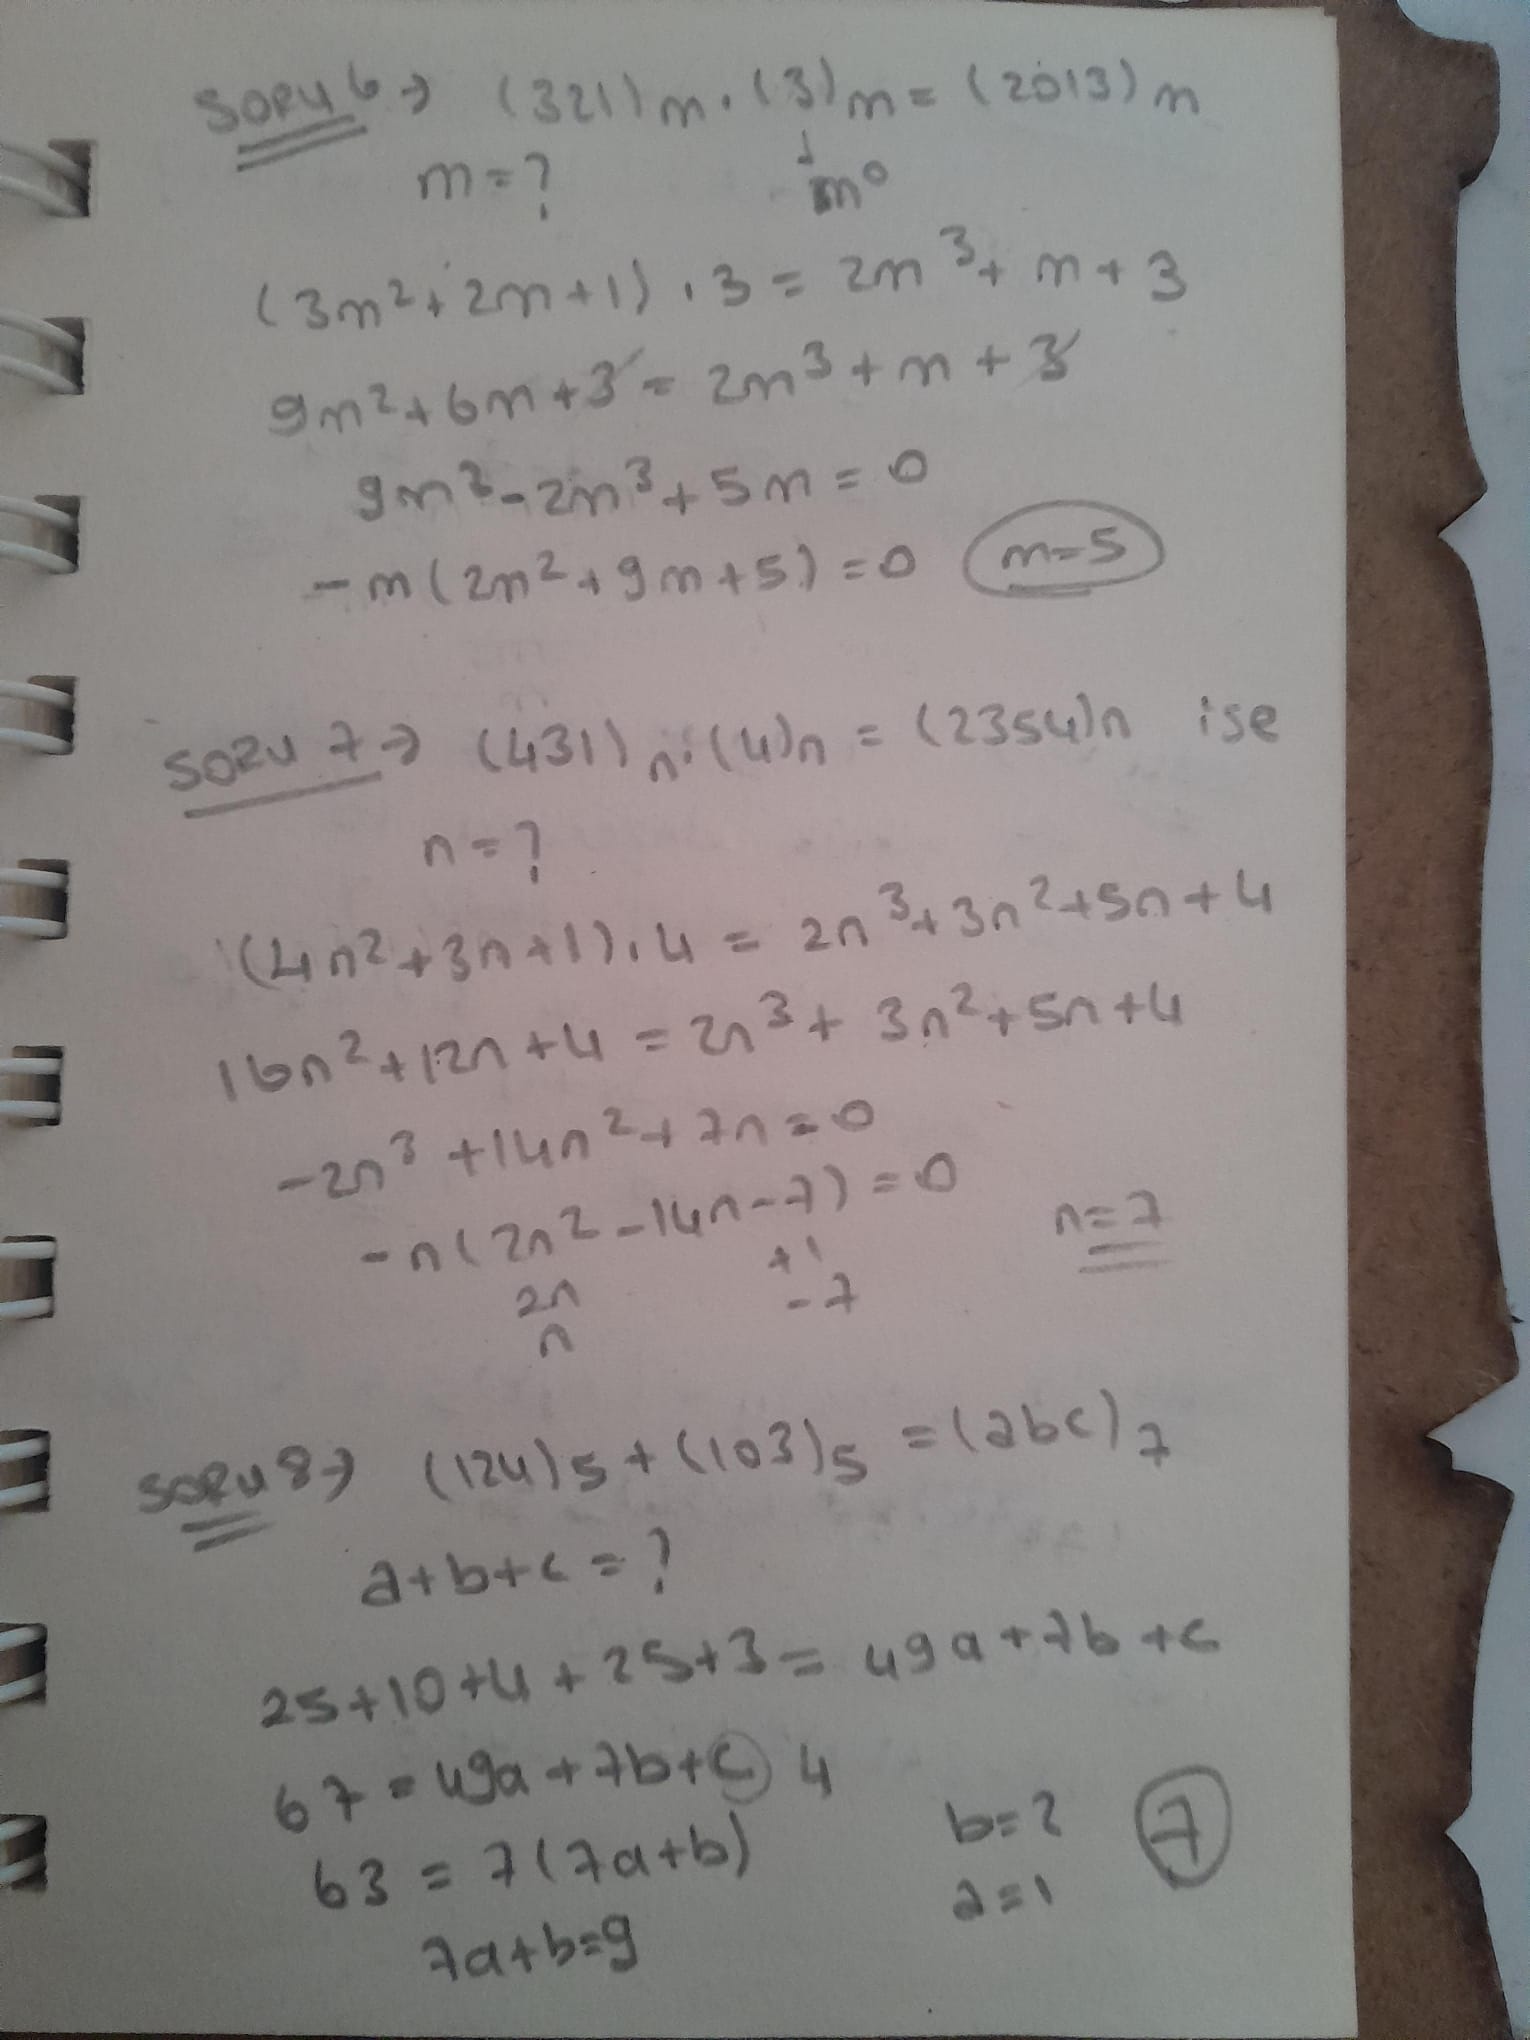 SORU 6 → (321)m . (3)m = (2013)m
m = ? ↓ m⁰
(3m² + 2m + 1) . 3 = 2m³ + m + 3
9m² + 6m + 3 = 2m³ + m + 3
9m² - 2m³ + 5m = 0
-m(2m² + 9m + 5) = 0 m=5
SORU 7 → (431)n . (4)n = (2354)n ise
n = ?
(4n² + 3n + 1) . 4 = 2n³ + 3n² + 5n + 4
16n² + 12n + 4 = 2n³ + 3n² + 5n + 4
-2n³ + 14n² + 7n = 0
-n(2n² - 14n - 7) = 0 n = 7
2n +1
n -7
SORU 8 → (124)5 + (103)5 = (abc)7
a+b+c = ?
25 + 10 + 4 + 25 + 3 = 49a + 7b + c
67 = 49a + 7b + c 4
63 = 7(7a+b) b=2 7
7a+b=9 a=1